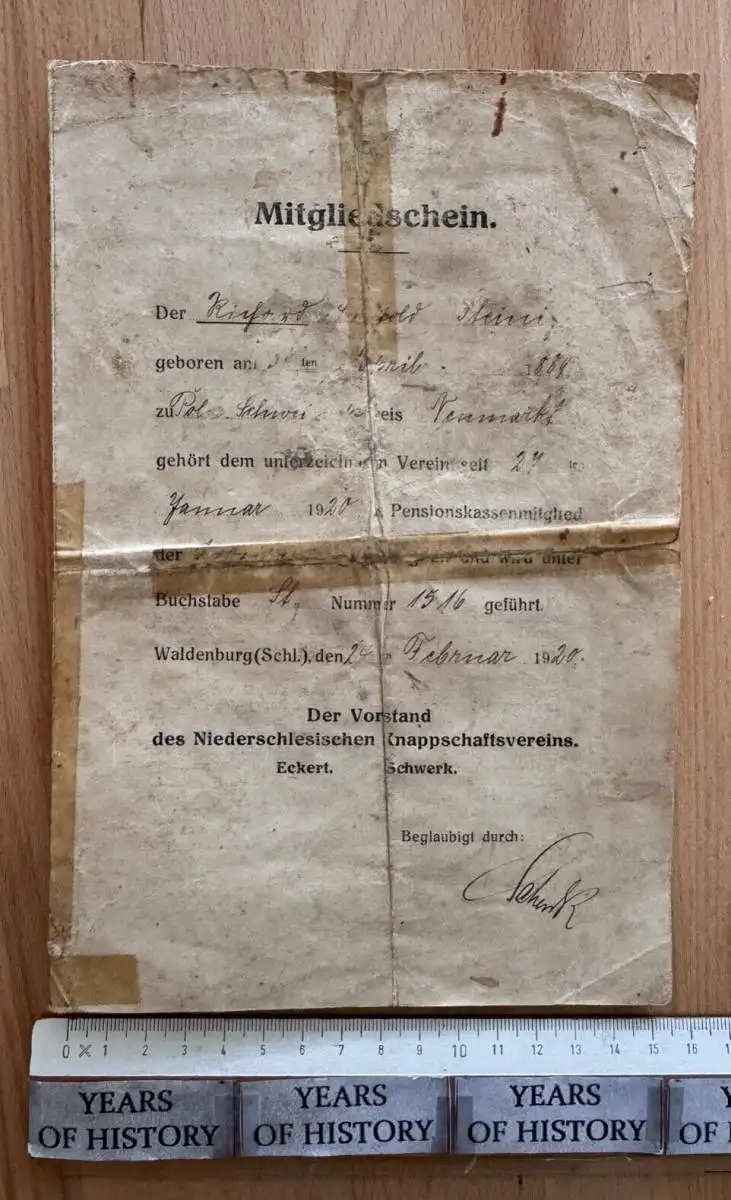 Mitgliedschein.
Der Richard Steini
geboren am ten April 1888
zu Pol. Kreis Neumarkt
gehört dem unterzeichneten Verein seit 27 ten
Januar 1920 Pensionskassenmitglied
der und wird unter
Buchstabe St, Nummer 1516 geführt.
Waldenburg (Schl.), den 24 Februar 1920.
Der Vorstand
des Niederschlesischen Knappschaftsvereins.
Eckert. Schwerk.
Beglaubigt durch:
Schenk
0 1 2 3 4 5 6 7 8 9 10 11 12 13 14 15 16
YEARS OF HISTORY
YEARS OF HISTORY
YEARS OF HISTORY
OF